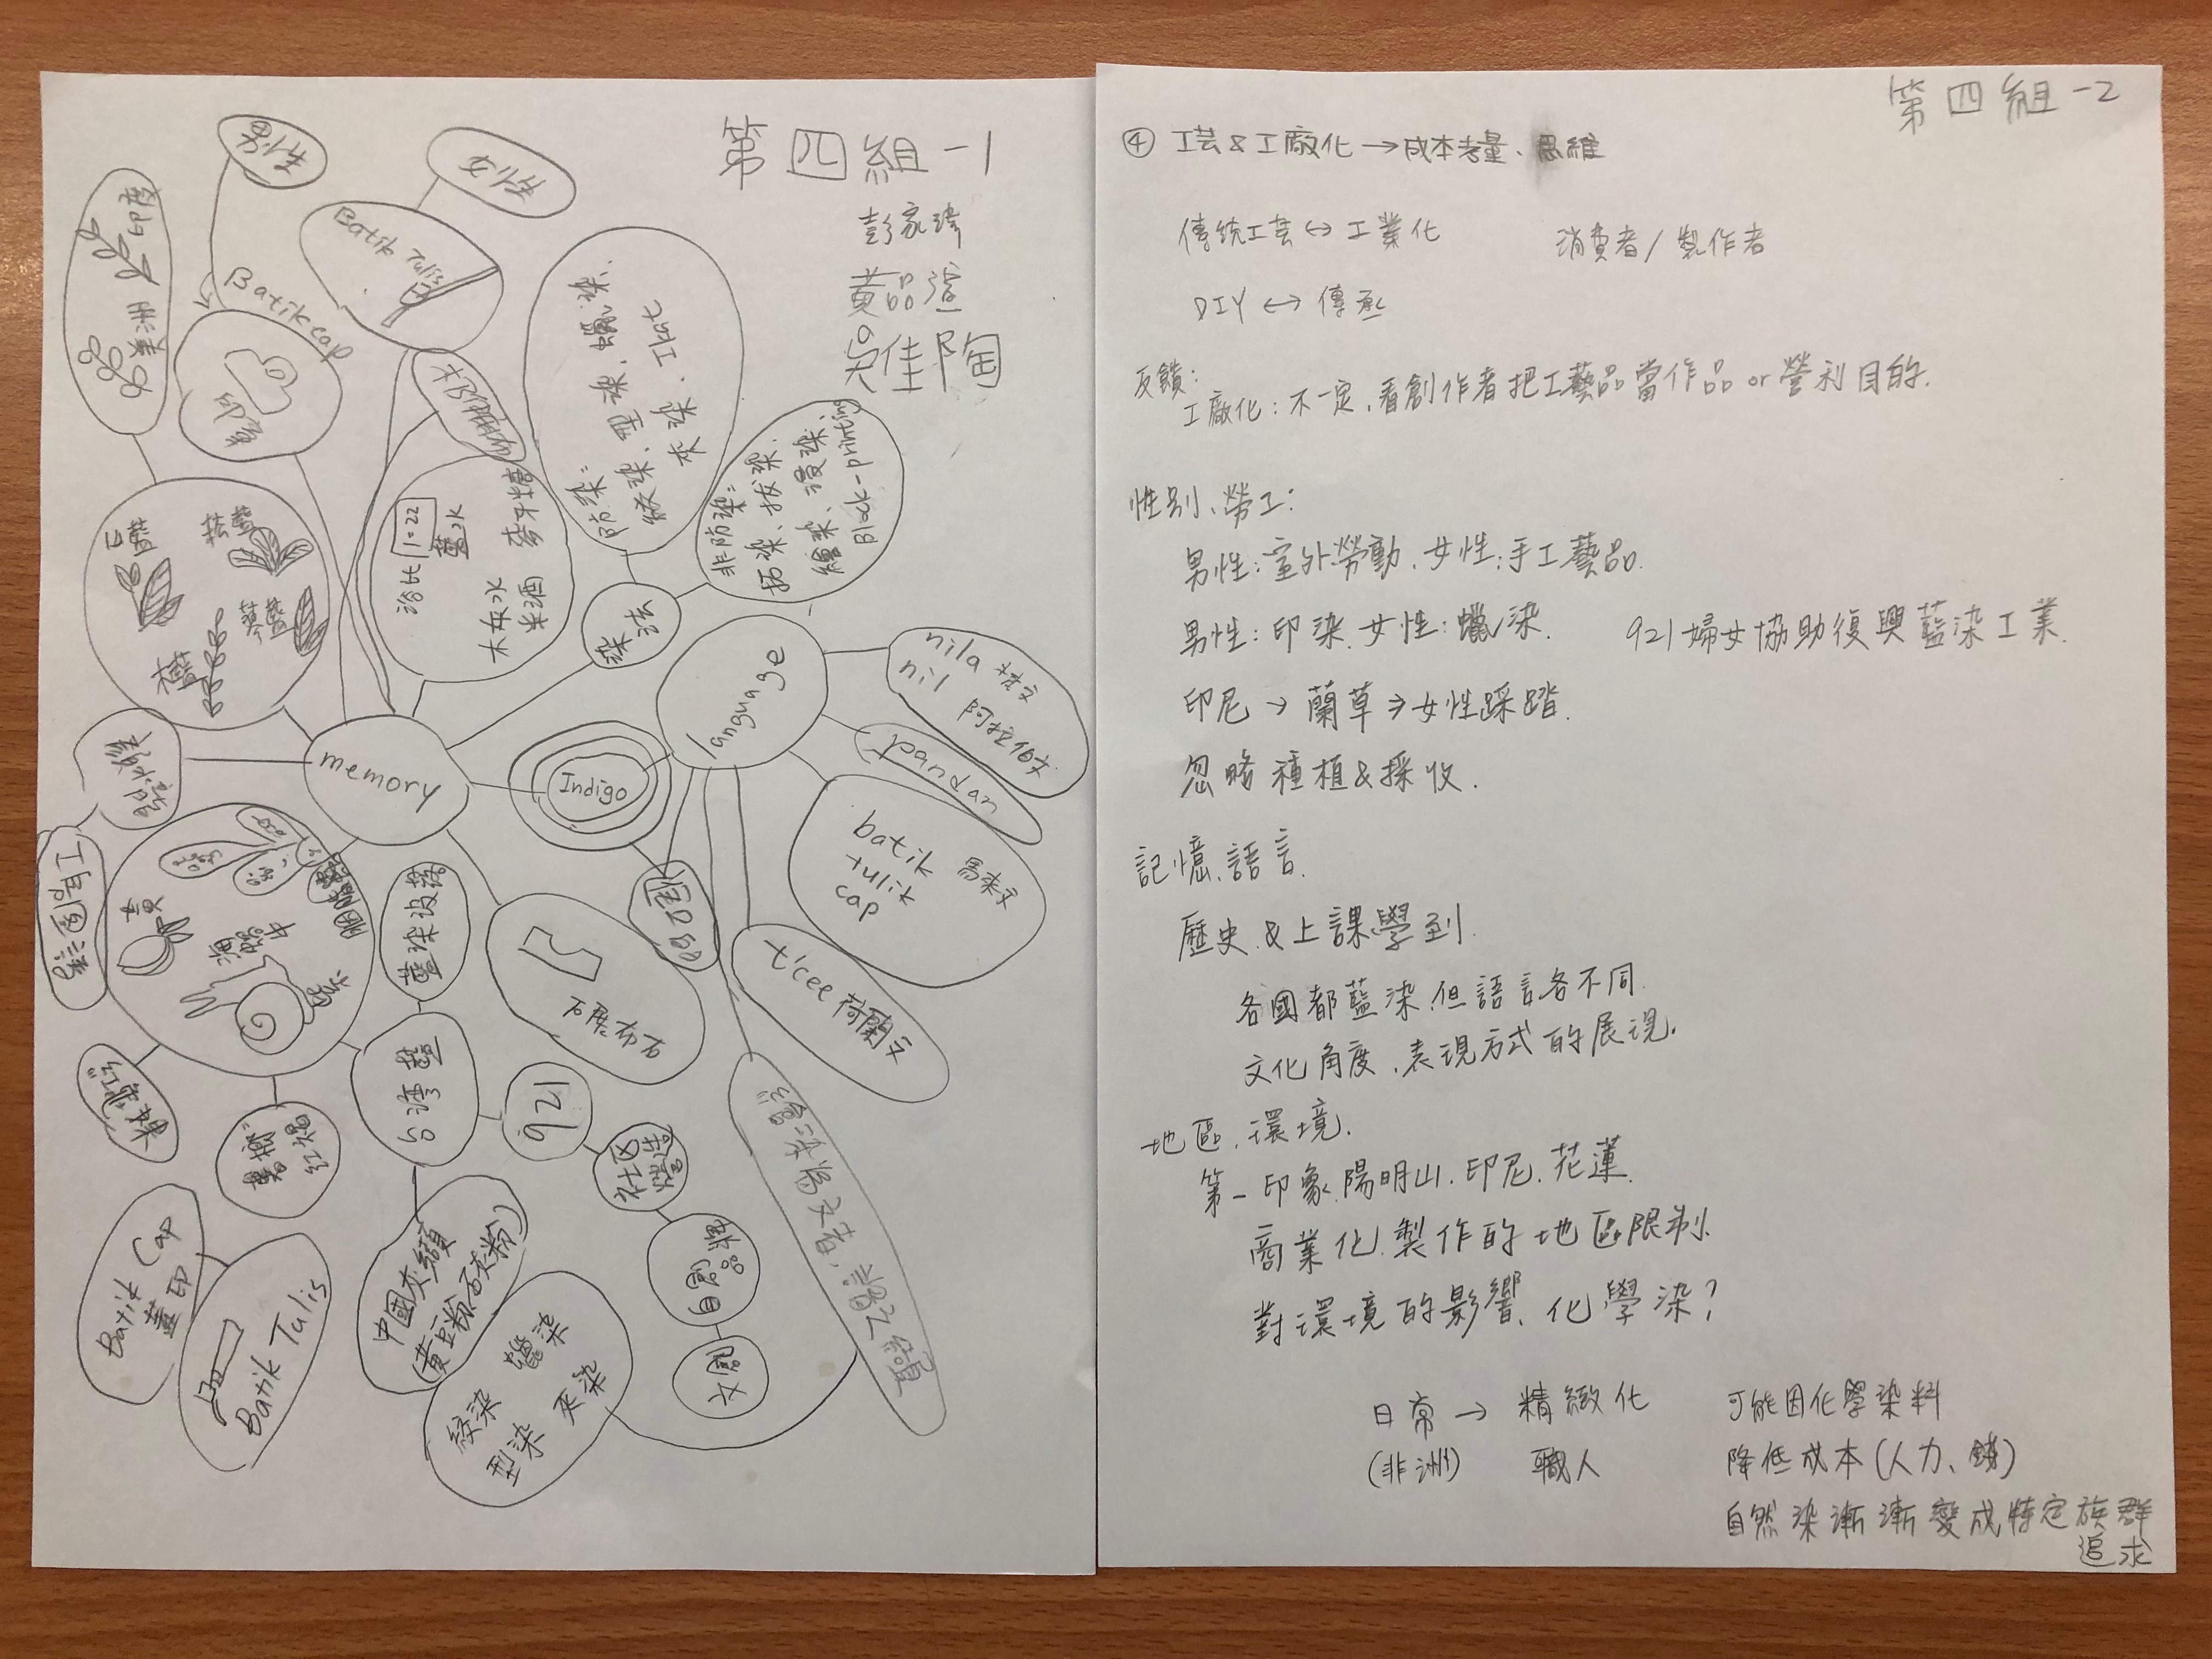 第四組-1
彭家瑋
黃品渲
吳佳陶
男性
女性
印度
美洲
Batik cap
Batik Tulis
印章
防染:
絞染、型染、蠟染、
夾染、Ikat
非防染:
拓染、拔染、
繪染、浸染、
Block-printing
染法
浴比 1:22
藍水
大灰水
米酒
麥芽糖
木藍
蓼藍
菘藍
memory
Indigo
language
nila 梵文
nil 阿拉伯文
pandan
batik
tulik
cap
馬來文
t'cee 荷蘭文
台灣藍
921
社區營造
文創
Batik Cap
蓋印
Batik Tulis
中國夾纈
(黃豆粉石灰粉)
絞染
蠟染
型染
夾染
第四組-2
④ 工芸&工廠化→成本考量、思維
傳統工芸↔工業化
消費者/製作者
DIY ↔ 傳承
反饋:
工廠化:不一定,看創作者把工藝品當作品or營利目的.
性別、勞工:
男性:室外勞動、女性:手工藝品.
男性:印染.女性:蠟染.
921婦女協助復興藍染工業.
印尼→蘭草→女性踩踏.
忽略種植&採收.
記憶.語言.
歷史&上課學到
各國都藍染.但語言各不同
文化角度、表現方式的展現.
地區.環境.
第一印象.陽明山.印尼.花蓮
商業化.製作的地區限制
對環境的影響、化學染?
日常→精緻化
(非洲) 職人
可能因化學染料
降低成本(人力、錢)
自然染漸漸變成特定族群
追求